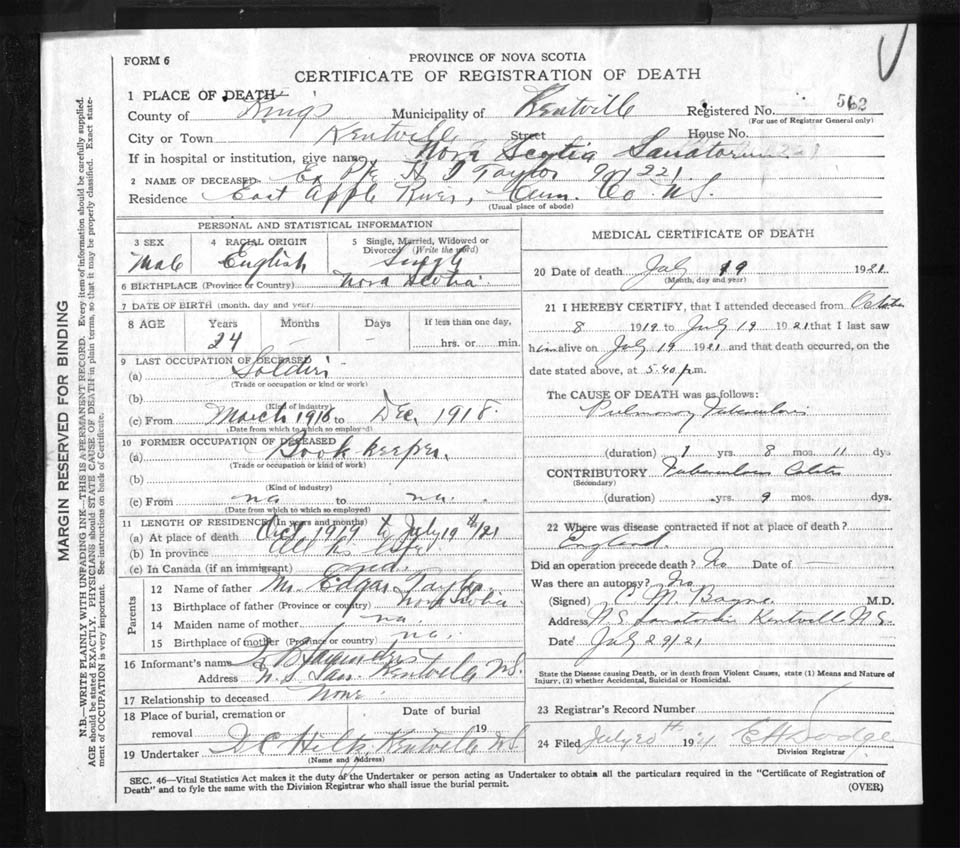 FORM 6
PROVINCE OF NOVA SCOTIA
CERTIFICATE OF REGISTRATION OF DEATH
1 PLACE OF DEATH
County of Kings Municipality of Kentville Registered No. 562
(For use of Registrar General only)
City or Town Kentville Street House No.
If in hospital or institution, give name Nova Scotia Sanatorium
2 NAME OF DECEASED Ex Pte H Taylor
Residence East Apple River, Cum. Co. N.S.
(Usual place of abode)
PERSONAL AND STATISTICAL INFORMATION
3 SEX 4 RACIAL ORIGIN 5 Single, Married, Widowed or Divorced (Write the word)
Male English Single
6 BIRTHPLACE (Province or Country) Nova Scotia
7 DATE OF BIRTH (month, day and year)
8 AGE Years Months Days If less than one day,
24 - - hrs. or min.
9 LAST OCCUPATION OF DECEASED
(a) Soldier
(Trade or occupation or kind or work)
(b)
(Kind of industry)
(c) From March 1918 to Dec. 1918.
(Date from which to which so employed)
10 FORMER OCCUPATION OF DECEASED
(a) Book keeper.
(Trade or occupation or kind of work)
(b)
(Kind of industry)
(c) From na to na.
(Date from which to which so employed)
11 LENGTH OF RESIDENCE (In years and months)
(a) At place of death Oct 1919 to July 19th/21
(b) In province All his life
(c) In Canada (if an immigrant)
Parents
12 Name of father Mr. Edgar Taylor
13 Birthplace of father (Province or country) Nova Scotia
14 Maiden name of mother na.
15 Birthplace of mother (Province or country) na.
16 Informant's name Saunders
Address N.S. San. Kentville N.S.
17 Relationship to deceased None
18 Place of burial, cremation or removal Date of burial 19
19 Undertaker Kentville N.S
(Name and Address)
MEDICAL CERTIFICATE OF DEATH
20 Date of death July 19 1921
(Month, day and year)
21 I HEREBY CERTIFY, that I attended deceased from October
8 1919 to July 19 1921 that I last saw
him alive on July 19 1921 and that death occurred, on the
date stated above, at 5.40 p.m.
The CAUSE OF DEATH was as follows:
Pulmonary Tuberculosis
(duration) 1 yrs. 8 mos. 11 dys
CONTRIBUTORY Tuberculous
(Secondary)
(duration) - yrs. 9 mos. dys.
22 Where was disease contracted if not at place of death?
England.
Did an operation precede death? No Date of —
Was there an autopsy? No
(Signed) M.D.
Address N.S. Sanatorium Kentville N.S.
Date July 29/21
State the Disease causing Death, or in death from Violent Causes, state (1) Means and Nature of Injury, (2) whether Accidental, Suicidal or Homicidal.
23 Registrar's Record Number
24 Filed July 20th 1921 Dodge
Division Registrar
SEC. 46—Vital Statistics Act makes it the duty of the Undertaker or person acting as Undertaker to obtain all the particulars required in the "Certificate of Registration of
Death" and to fyle the same with the Division Registrar who shall issue the burial permit. (OVER)
MARGIN RESERVED FOR BINDING
N.B.—WRITE PLAINLY WITH UNFADING INK—THIS IS A PERMANENT RECORD. Every item of information should be carefully supplied.
AGE should be stated EXACTLY. PHYSICIANS should STATE CAUSE OF DEATH in plain terms, so that it may be properly classified. Exact statement of OCCUPATION is very important. See instructions on back of Certificate.